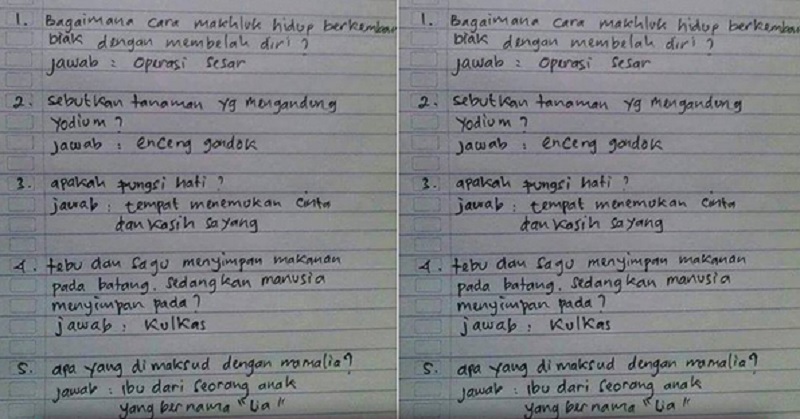 1. Bagaimana cara makhluk hidup berkemban
biak dengan membelah diri ?
jawab : Operasi Sesar
2. sebutkan tanaman yg mengandung
Yodium ?
jawab : enceng gondok
3. apakah pungsi hati ?
jawab : tempat menemukan cinta
dan kasih sayang
4. tebu dan sagu menyimpan makanan
pada batang. sedangkan manusia
menyimpan pada ?
jawab : Kulkas
5. apa yang di maksud dengan mamalia ?
jawab : Ibu dari seorang anak
yang bernama "Lia"
1. Bagaimana cara makhluk hidup berkemban
biak dengan membelah diri ?
jawab : Operasi Sesar
2. sebutkan tanaman yg mengandung
Yodium ?
jawab : enceng gondok
3. apakah pungsi hati ?
jawab : tempat menemukan cinta
dan kasih sayang
4. tebu dan sagu menyimpan makanan
pada batang. sedangkan manusia
menyimpan pada ?
jawab : Kulkas
5. apa yang di maksud dengan mamalia ?
jawab : Ibu dari seorang anak
yang bernama "Lia"